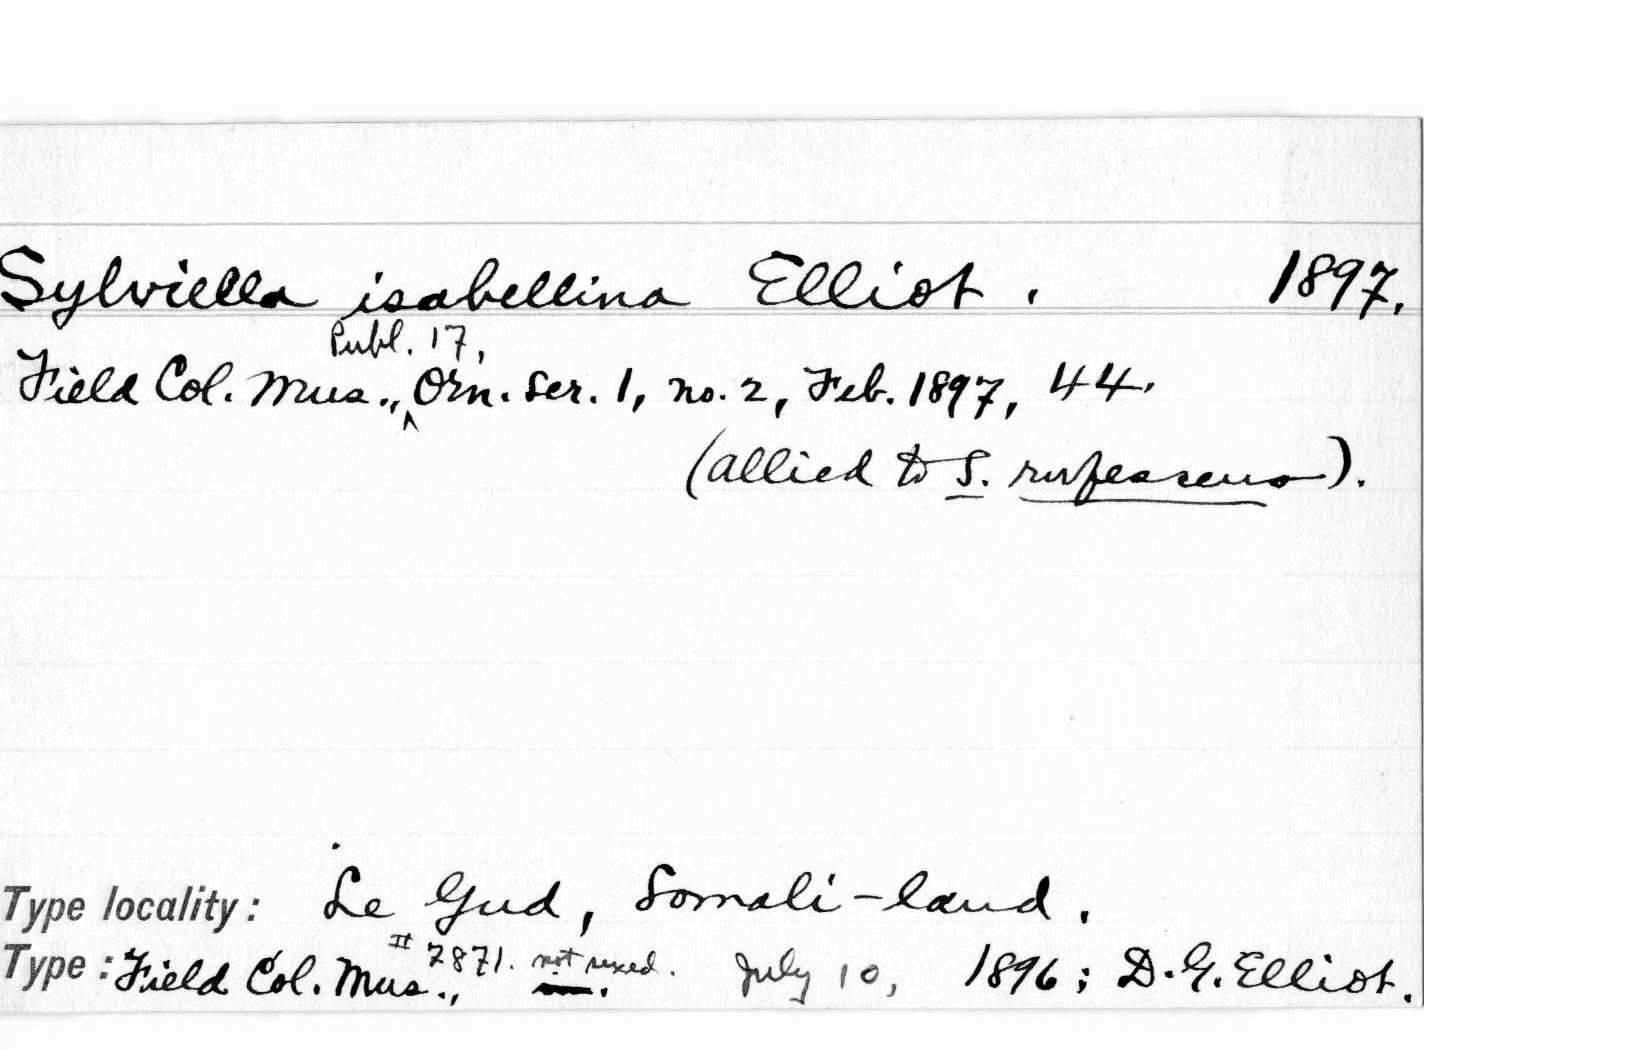 Sylviella isabellina Elliot. 1897.
Publ. 17,
Field Col. Mus., ^ Orn. Ser. 1, no. 2, Feb. 1897, 44.
(allied to S. rufescens).
Type locality: Le Gud, Somali-land.
Type: Field Col. Mus., #7871. not sexed. July 10, 1896; D.G. Elliot.